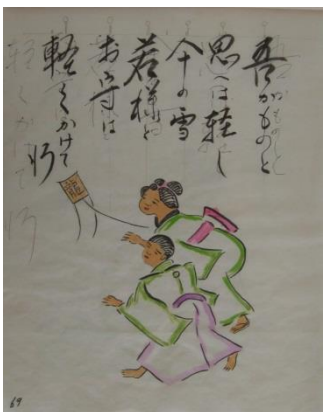 吾かものと
思へは軽し
仐の雪
若様と
お守は
軽くかけて
行
龍
69